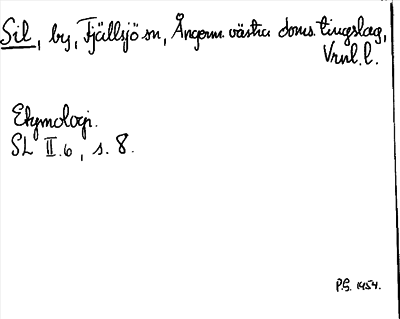 Sil, by, Fjällsjö sn, Ångerm. västra doms. tingslag,
Vrnl. l.
Etymologi.
SL II.6, s. 8.
P.G. 1954.